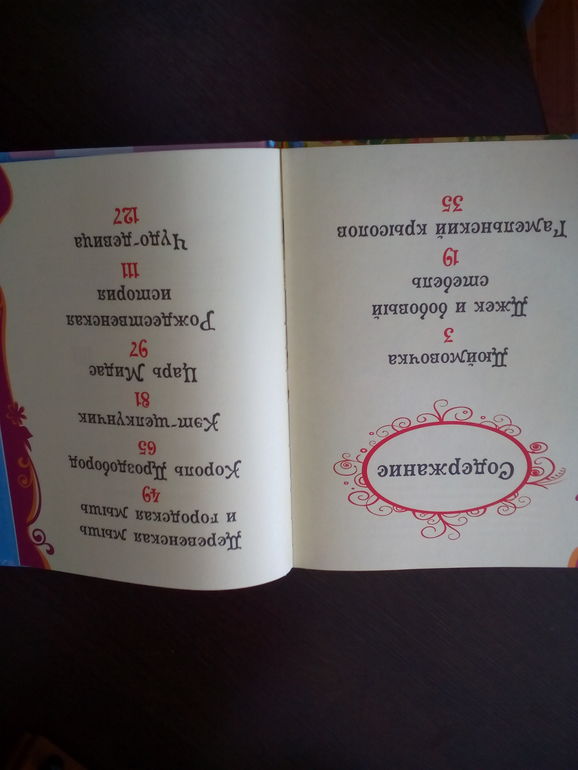 Содержание
Дюймовочка
3
Джек и бобовый
стебель
19
Гамельнский крысолов
35
Деревенская мышь
и городская мышь
49
Король Дроздобород
65
Кэт-щелкунчик
81
Царь Мидас
97
Рождественская
история
111
Чудо-девица
127